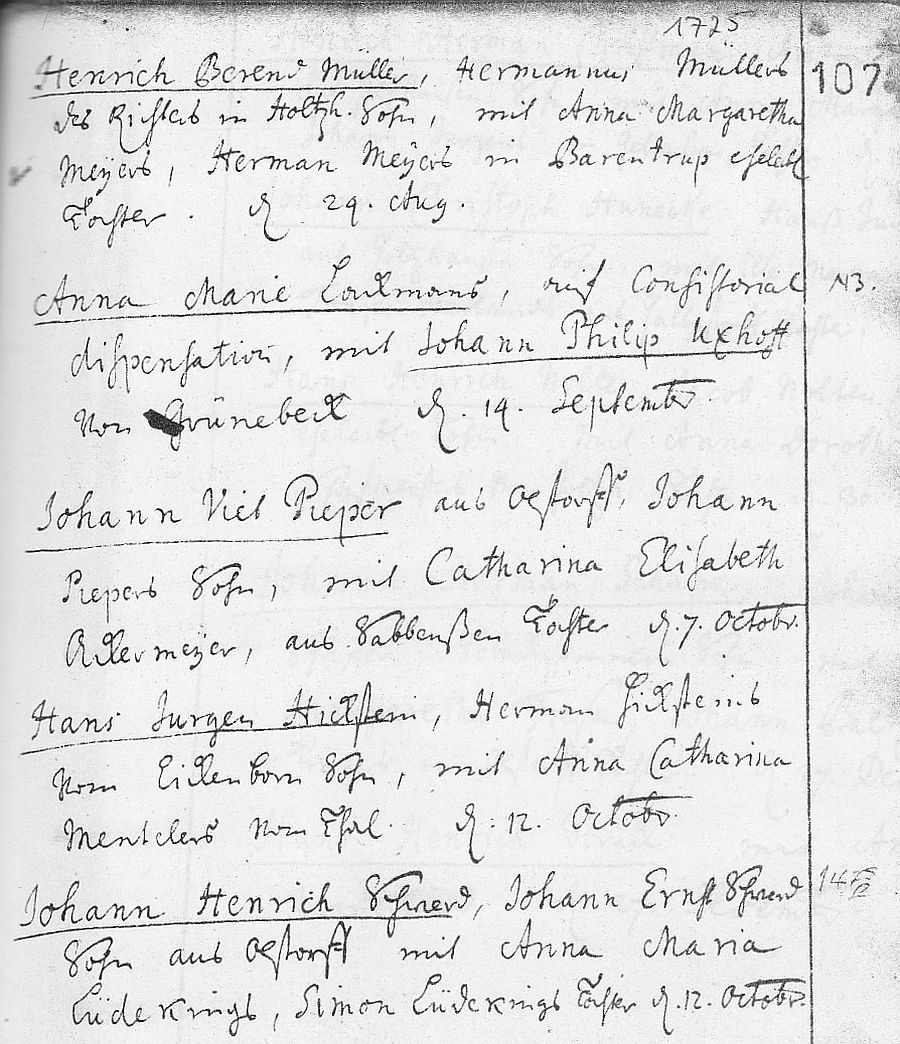 1725
Henrich Berend Muller, Hermannus Müllers 107
des Richters in Holtzh. Sohn, mit Anna Margaretha
Meÿers, Herman Meÿers in Barentrup eheleibl
Tochter. d. 29. Aug
Anna Marie Lockmans, auf Consistorial NB.
dispensation, mit Johann Philip Uxhoff
von Grünebeck d. 14. Septembr
Johann Viet Pieper aus Oestorff, Johann
Piepers Sohn, mit Catharina Elisabeth
Ackermeyer, aus Sabbenßen Tochter d. 7. Octobr.
Hans Jurgen Hickstein, Herman Hicksteins
vom Eickenborn Sohn, mit Anna Catharina
Mentelers vom Thal. d. 12. Octobr.
Johann Henrich Schwerd, Johann Ernst Schwerd
Sohn aus Oestorff mit Anna Maria
Lüdekings, Simon Lüdekings Tochter d. 12. Octobr.